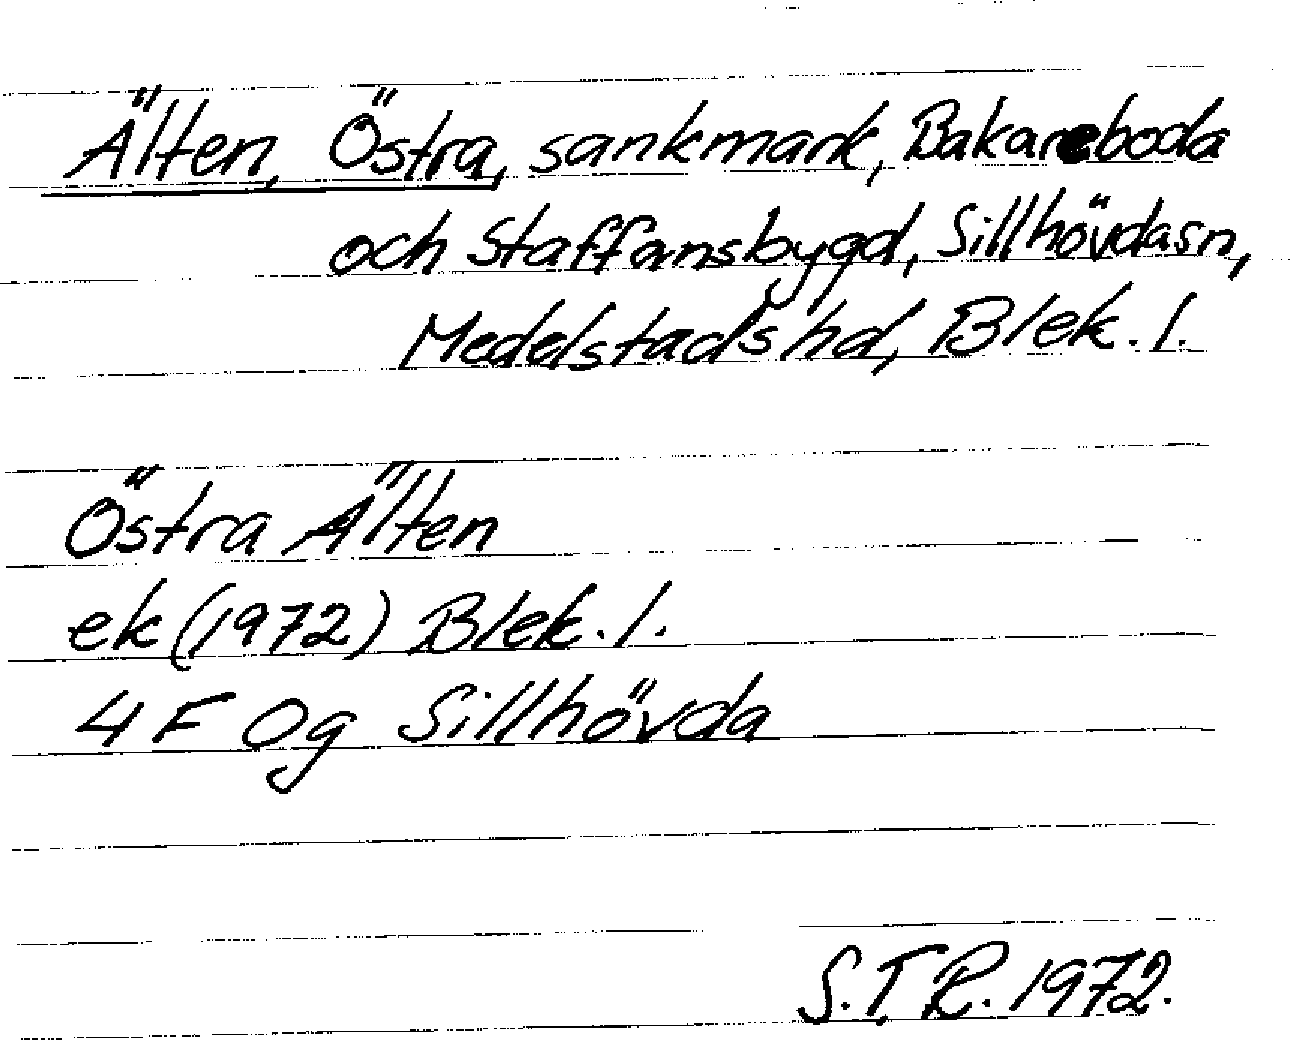 Älten, Östra, sankmark, Bakareboda
och Staffansbygd, Sillhövdasn,
Medelstadshd, Blek. l.
Östra Älten
ek (1972) Blek. l.
4 F 0g Sillhövda
S.T.R. 1972.